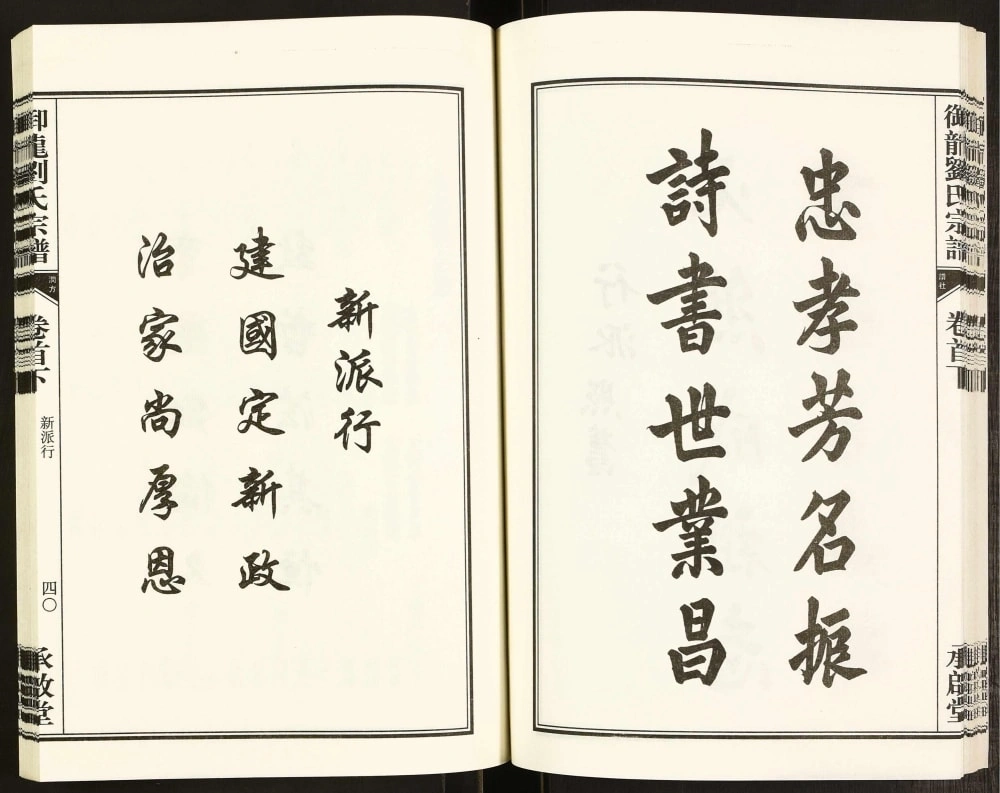 御龍劉氏宗譜
卷首下
承啟堂
忠孝芳名振
詩書世業昌
新派行
建國定新政
治家尚厚恩
御龍劉氏宗譜
卷首下
新派行
四〇
承啟堂